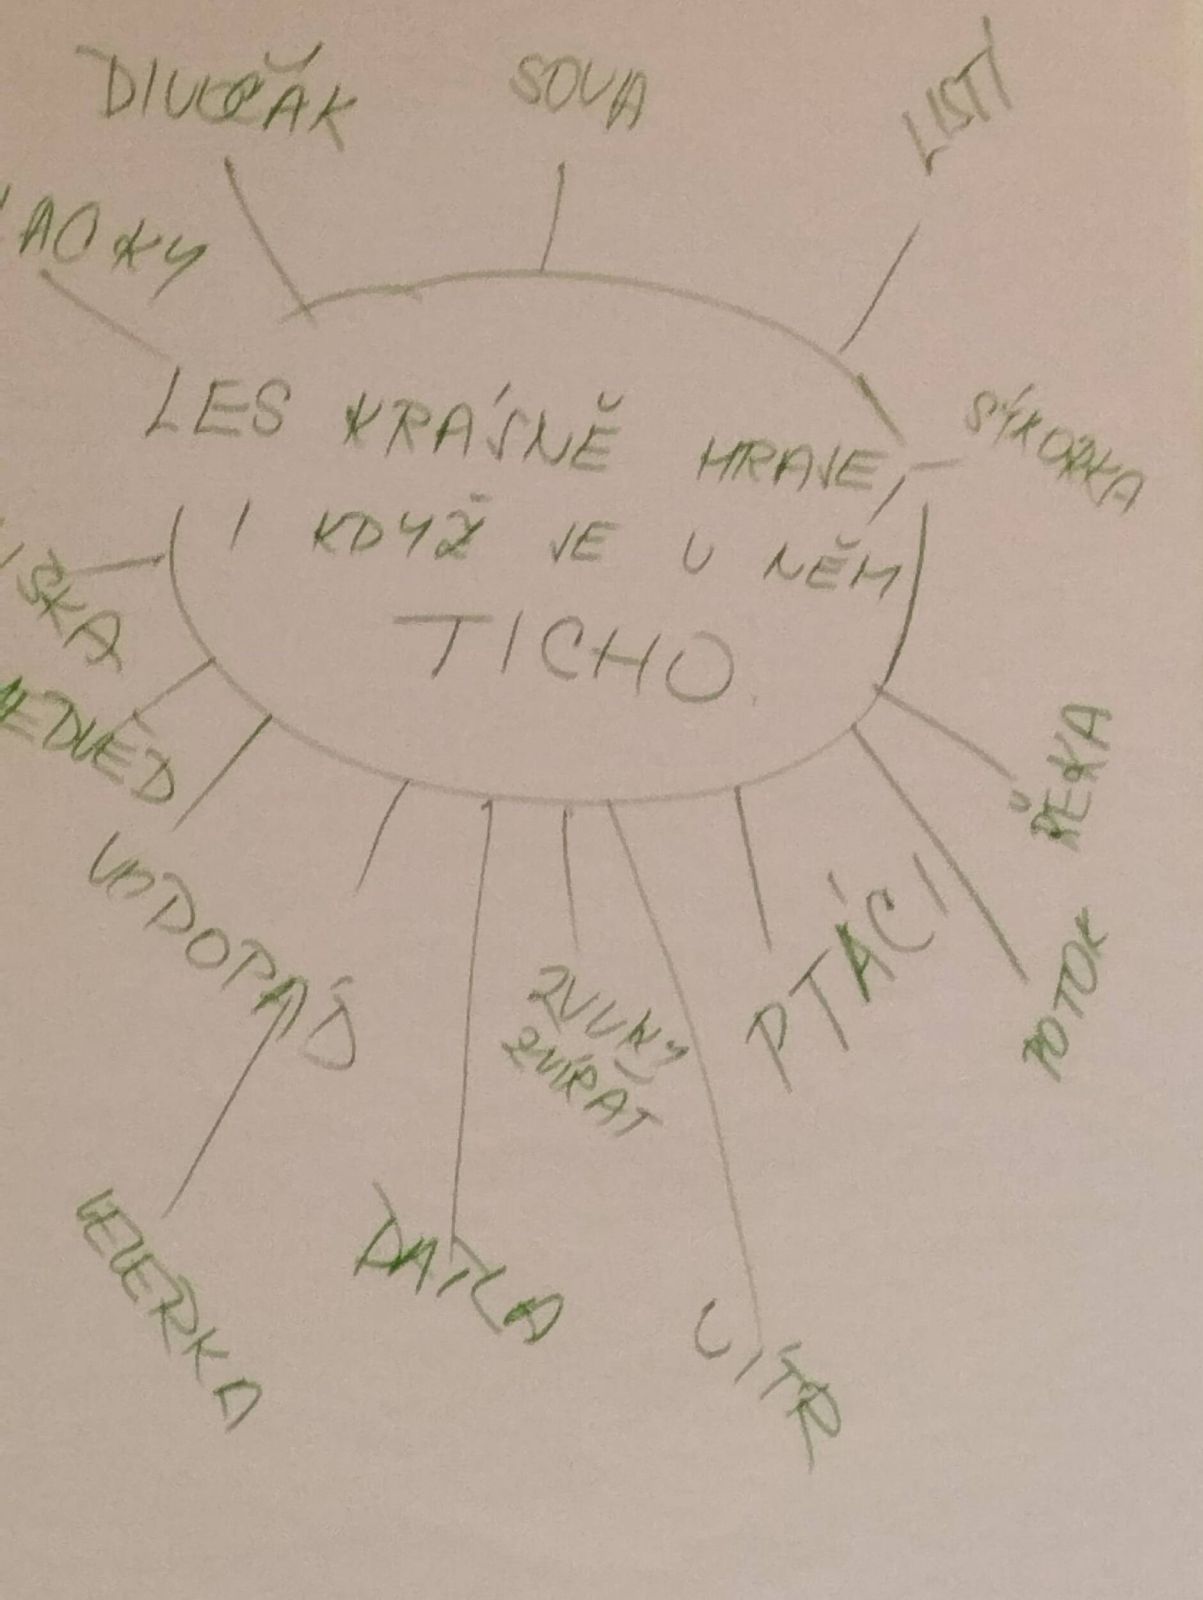 DIVOČÁK
SOVA
LISTÍ
LES KRÁSNĚ HRAJE,
I KDYŽ JE V NĚM
TICHO.
SÝKORKA
ŠKA
EDVĚD
VODOPÁD
ŘEKA
POTOK
PTÁCI
ZVUKY
ZVÍŘAT
VEVERKA
DATLA
VÍTR